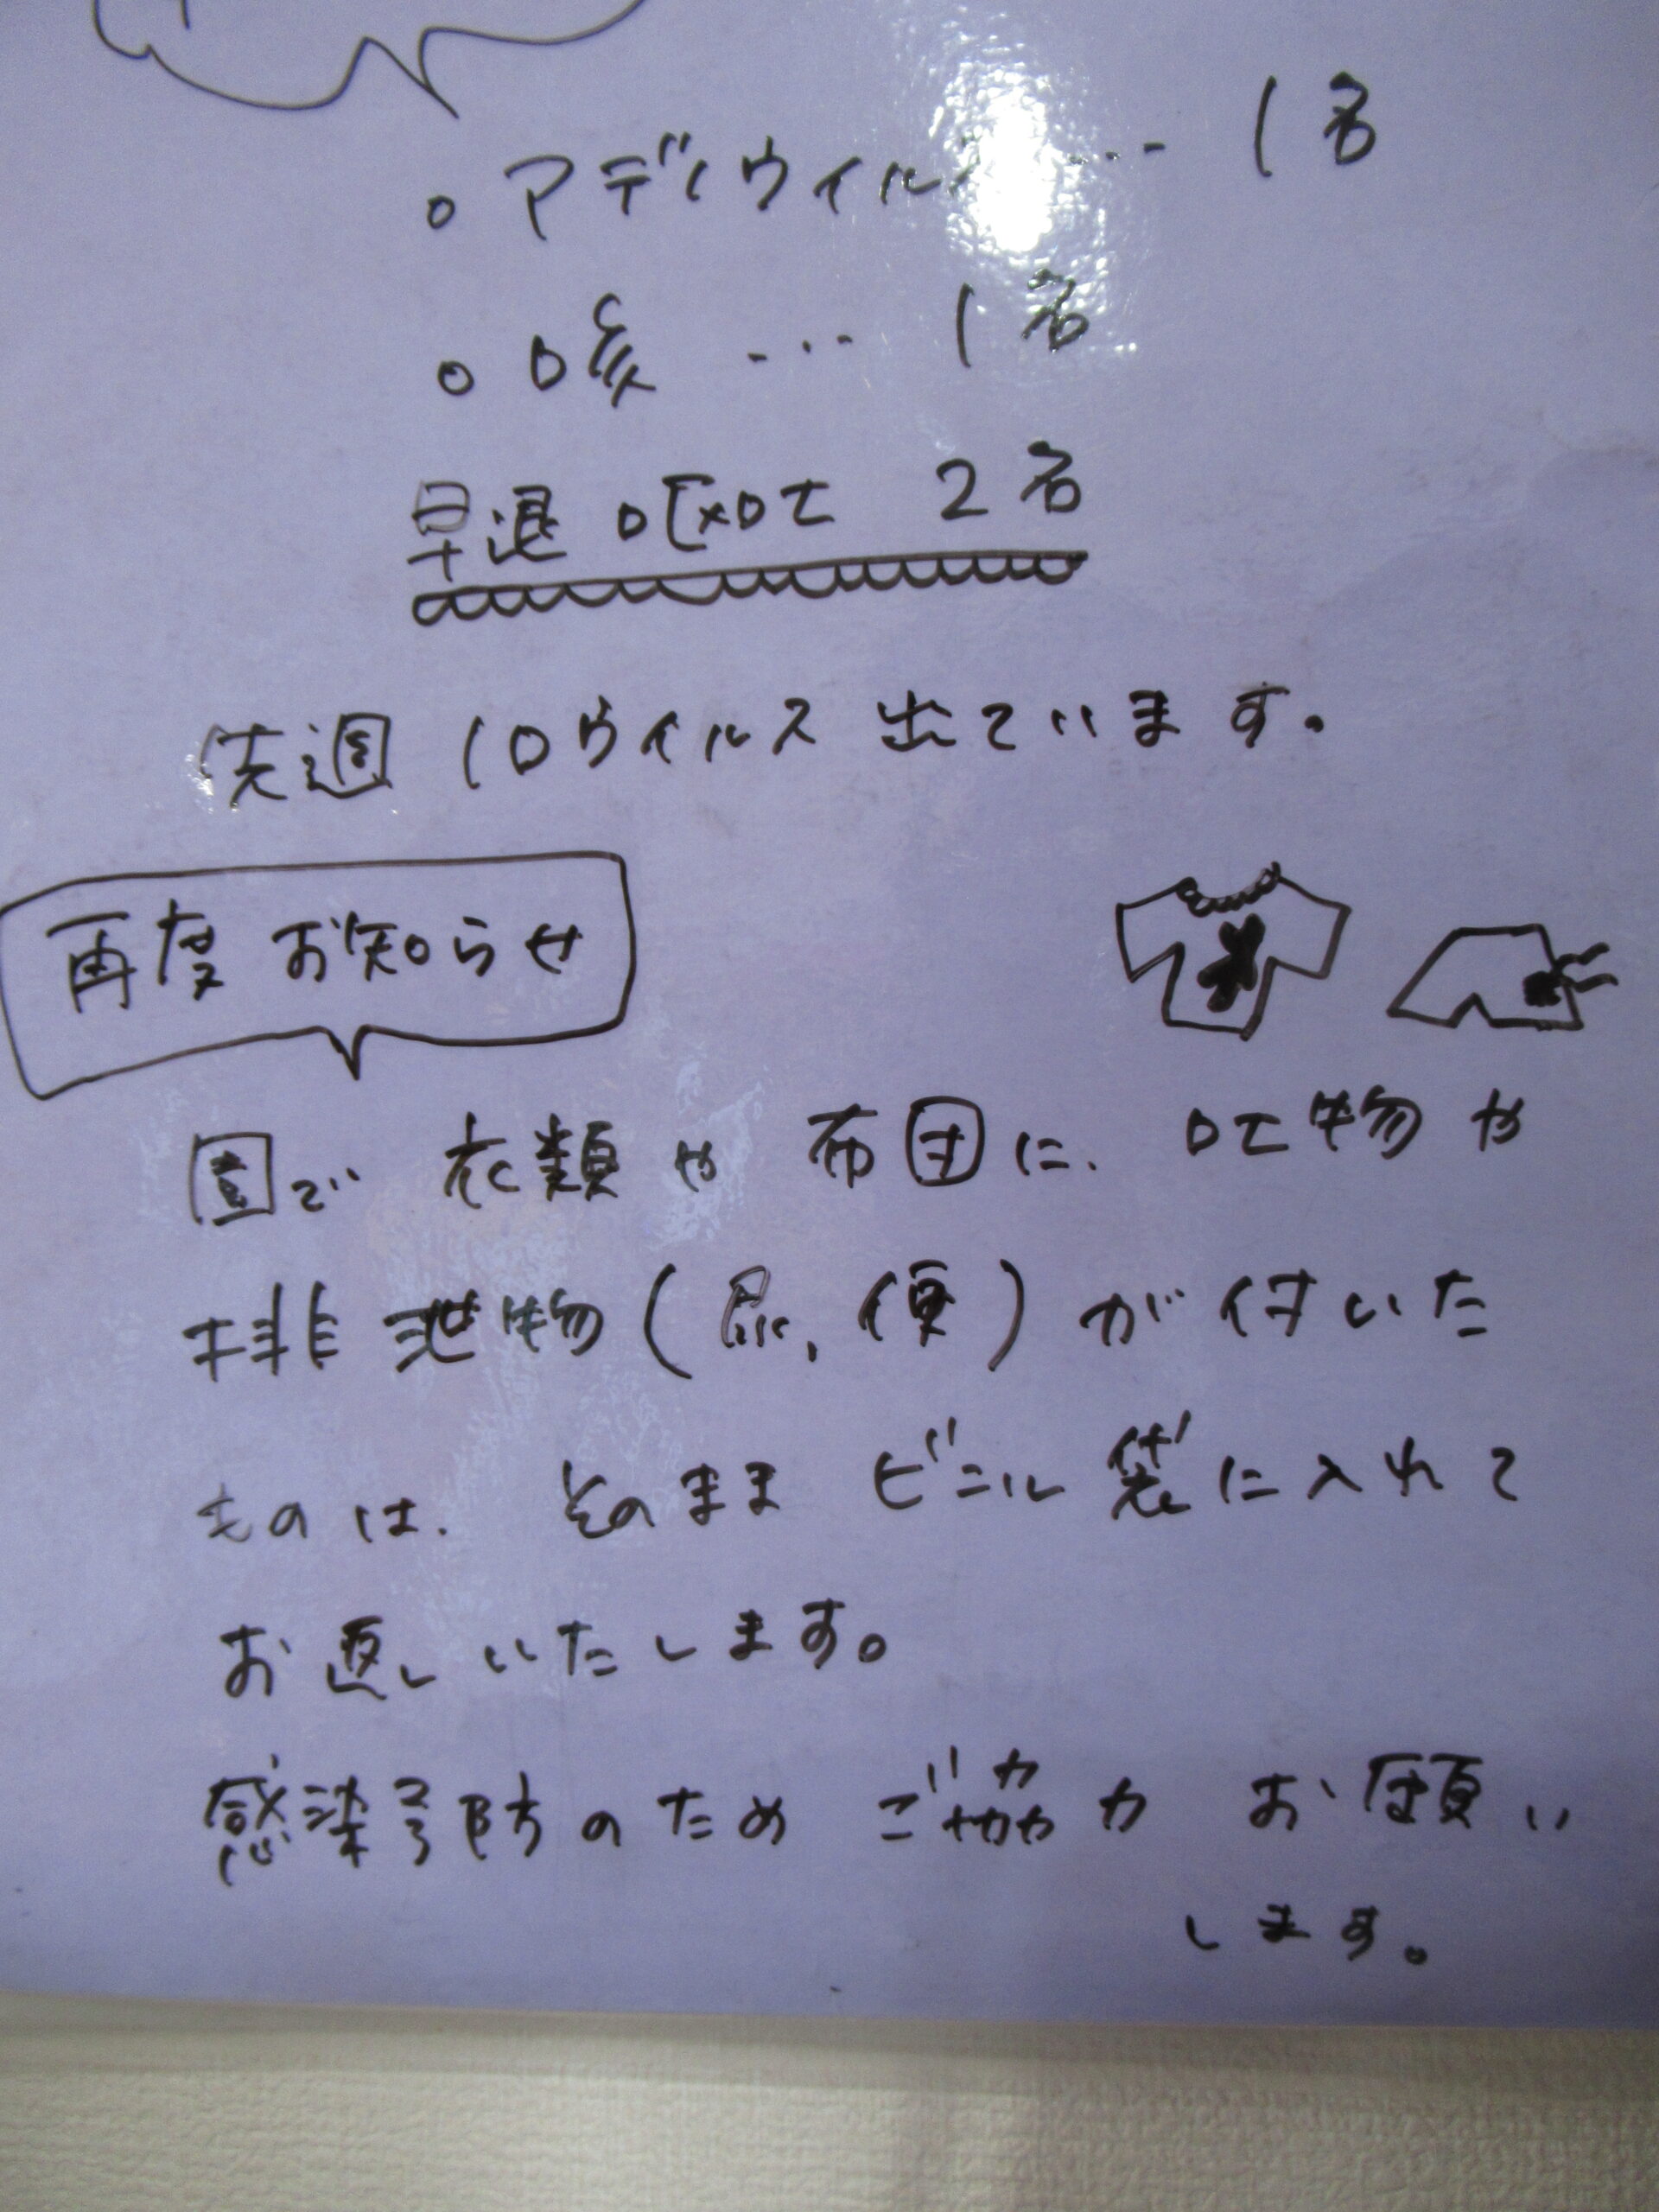 。アデノウィルス … 1名
。咳 … 1名
早退 嘔吐 2名
先週 ノロウィルス 出ています。
再度 お知らせ
園で 衣類や 布団に、吐物や
排泄物(尿、便)が付いた
ものは、そのまま ビニル袋に入れて
お返しいたします。
感染予防のため ご協力 お願い
します。